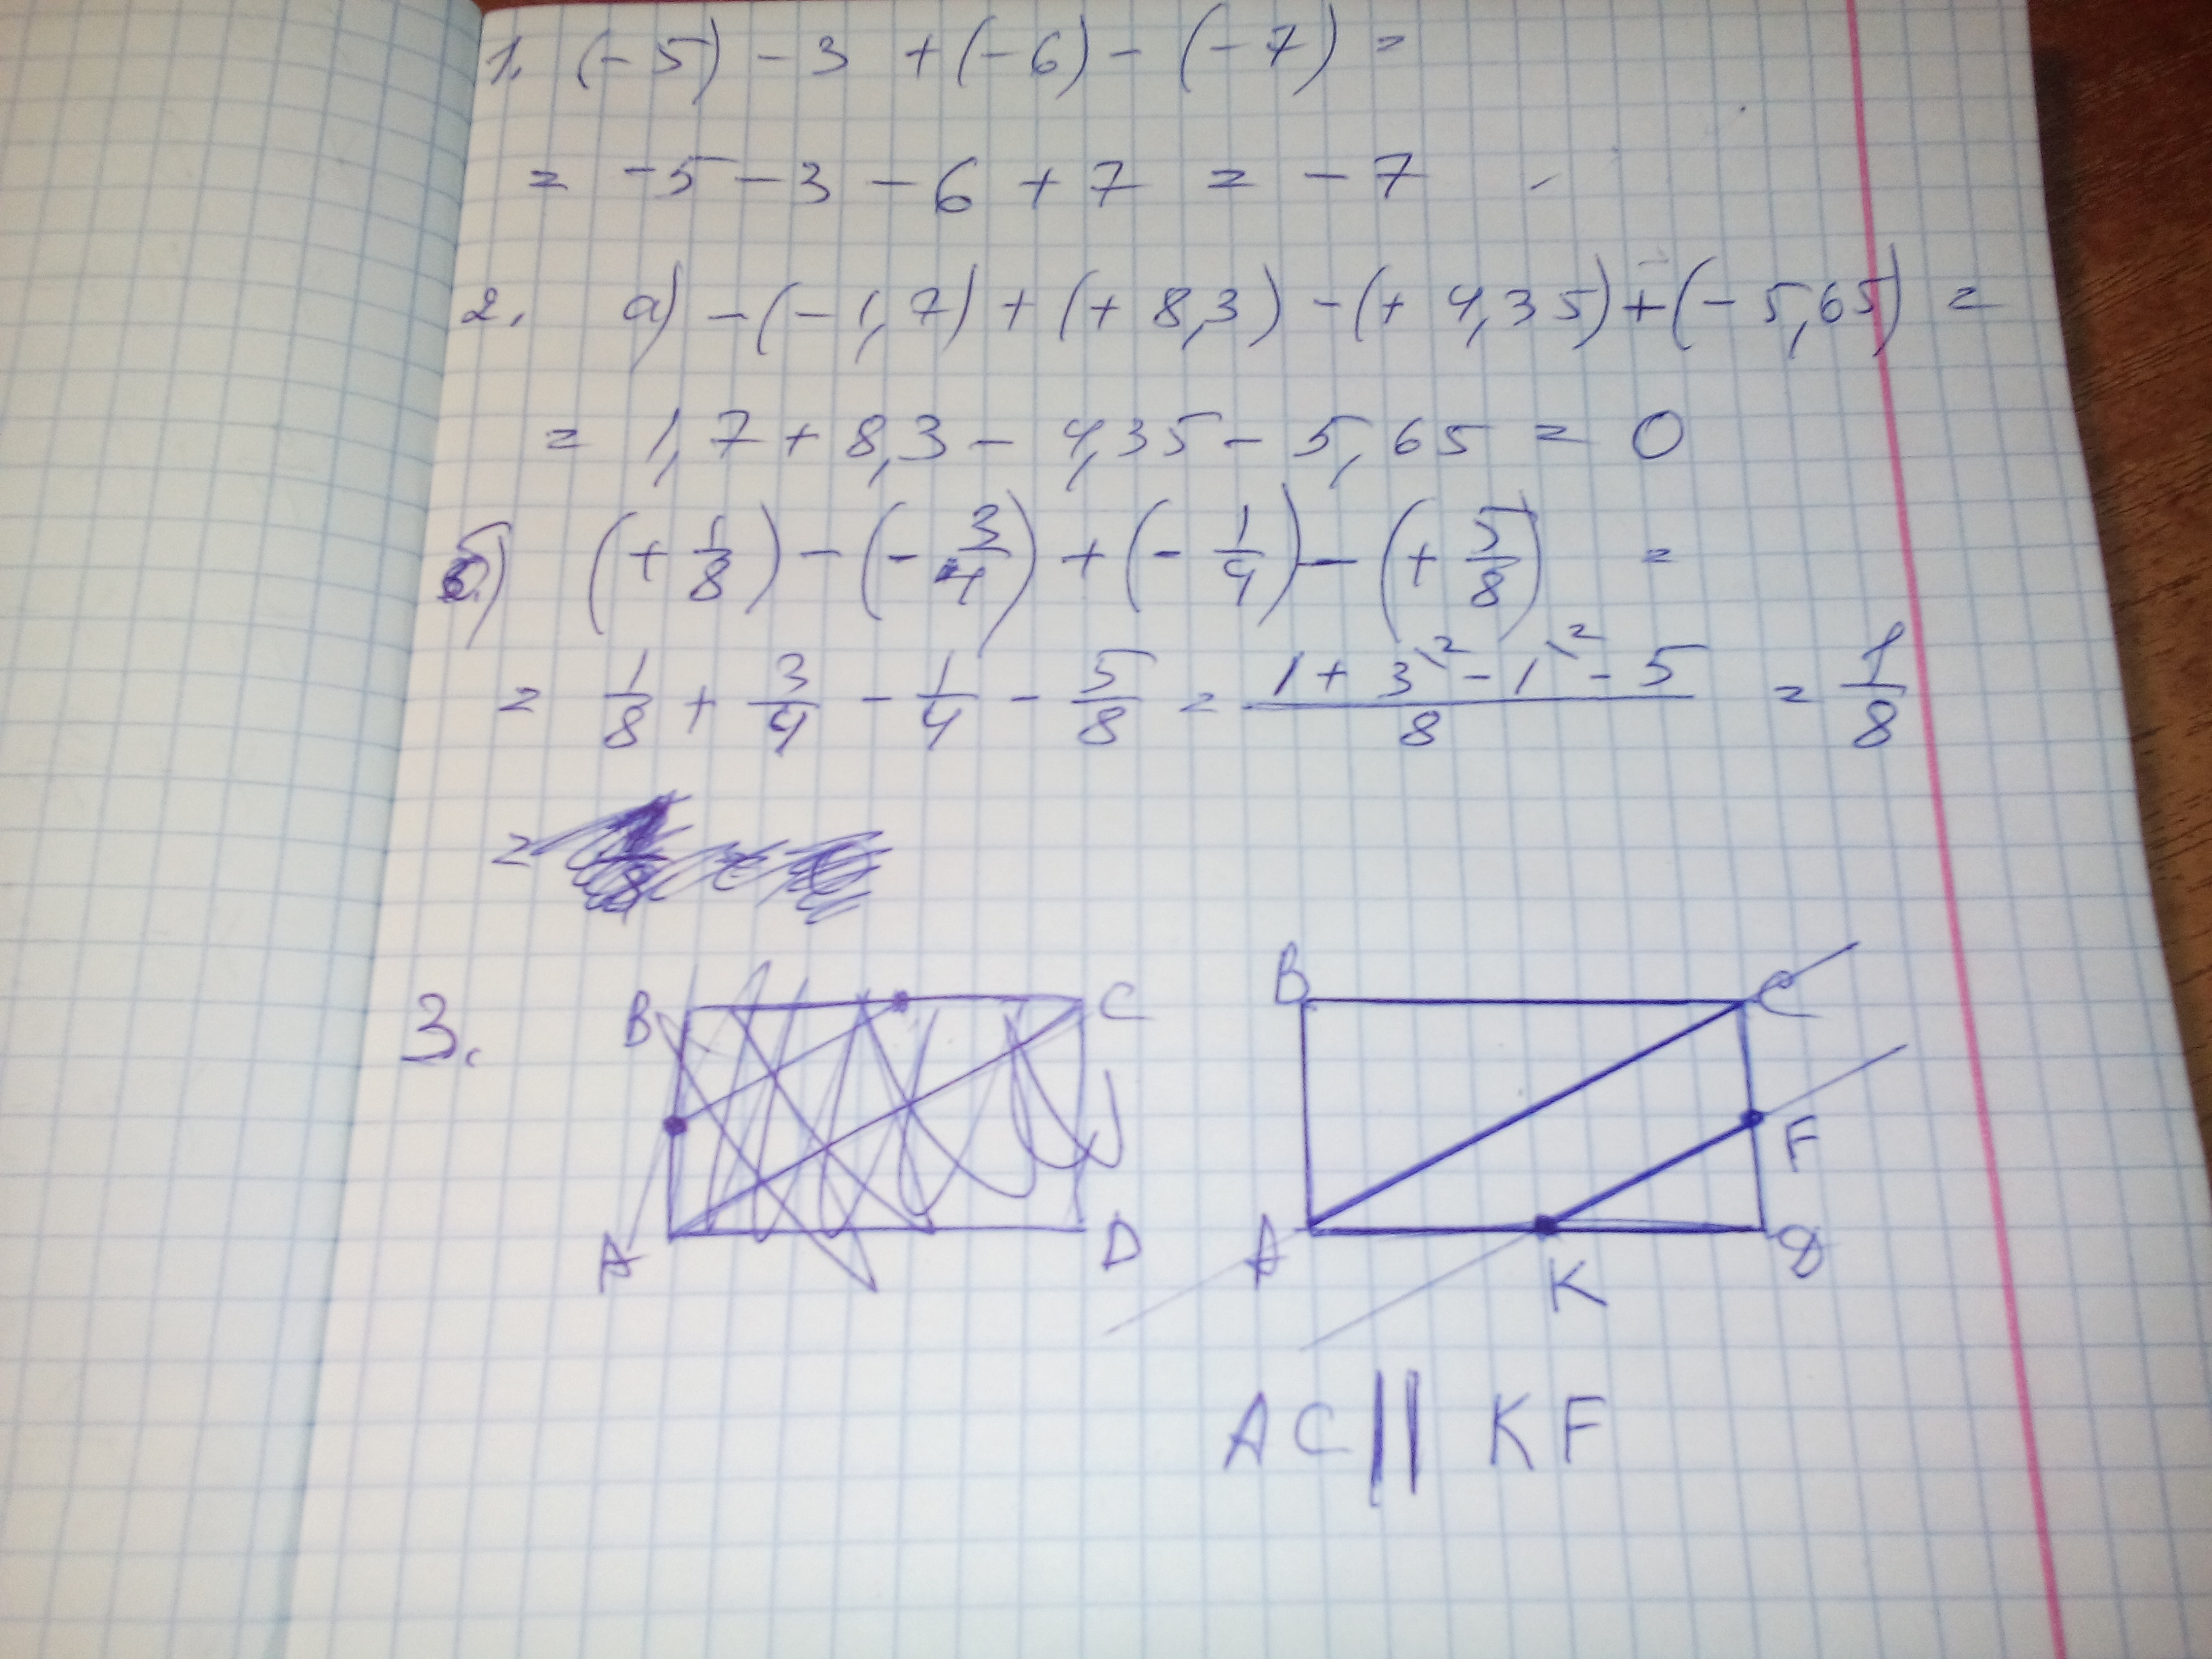 1. (-5) - 3 + (-6) - (-7) =
= -5 - 3 - 6 + 7 = -7
2. а) -(-1,7) + (+8,3) - (+4,35) + (-5,65) =
= 1,7 + 8,3 - 4,35 - 5,65 = 0
б) (+ 1/8) - (- 3/4) + (- 1/4) - (+ 5/8) =
= 1/8 + 3/4 - 1/4 - 5/8 = (1 + 3\² - 1\² - 5)/8 = 1/8
=
3. B C B C
F
A D A K D
AC || KF